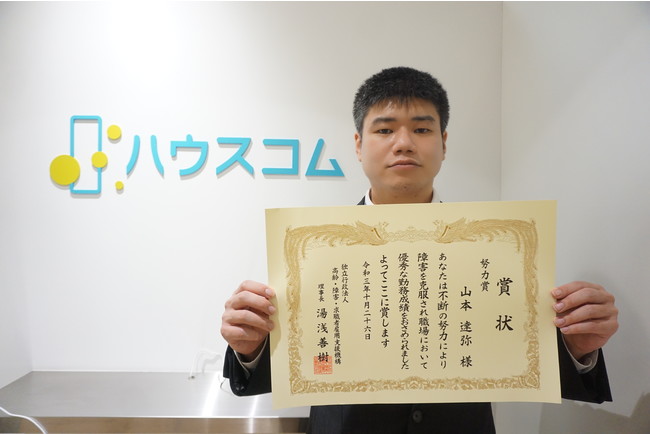 ハウスコム
賞状
努力賞
山本 達弥 様
あなたは不断の努力により
障害を克服され職場において
優秀な勤務成績をおさめられました
よってここに賞します
令和三年十月二十六日
独立行政法人
高齢・障害・求職者雇用支援機構
理事長 湯浅善樹